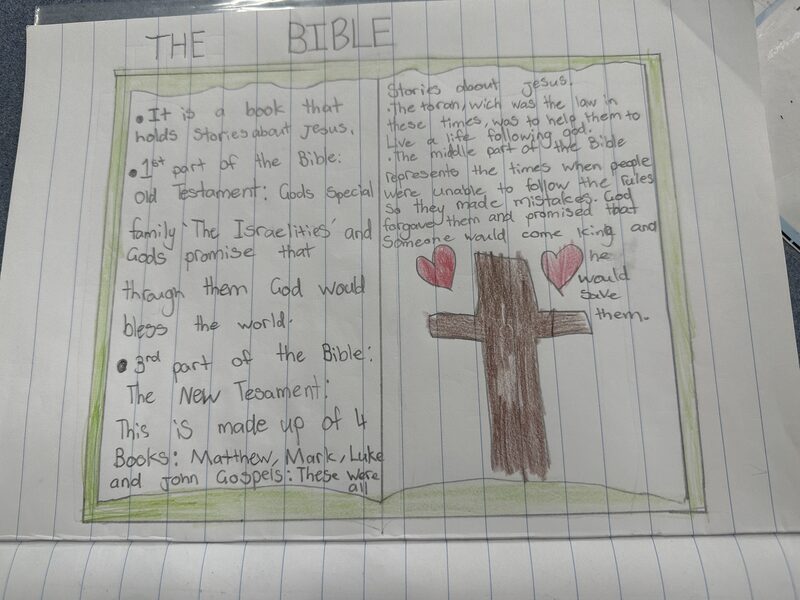 THE BIBLE
• It is a book that
holds stories about Jesus.
• 1st part of the Bible:
Old Testament: Gods special
family 'The Israelities' and
Gods promise that
through them God would
bless the world.
• 3rd part of the Bible:
The New Tesament:
This is made up of 4
Books: Matthew, Mark, Luke
and John Gospels: These were
all
Stories about Jesus.
• The torah, wich was the law in
these times, was to help them to
Live a life following god.
• The middle part of the Bible
represents the times when people
were unable to follow the rules
So they made mistakes. God
forgave them and promised that
Someone would come king and
he
would
save
them.